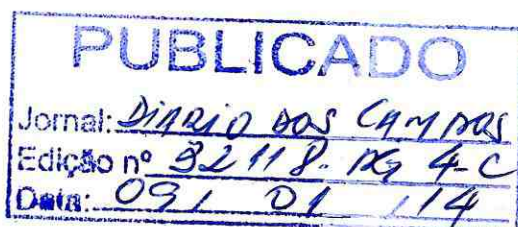 PUBLICADO
Jornal: DIARIO DOS CAMPOS
Edição nº 32118. PG 4-C
Data: 09/ 01 /14